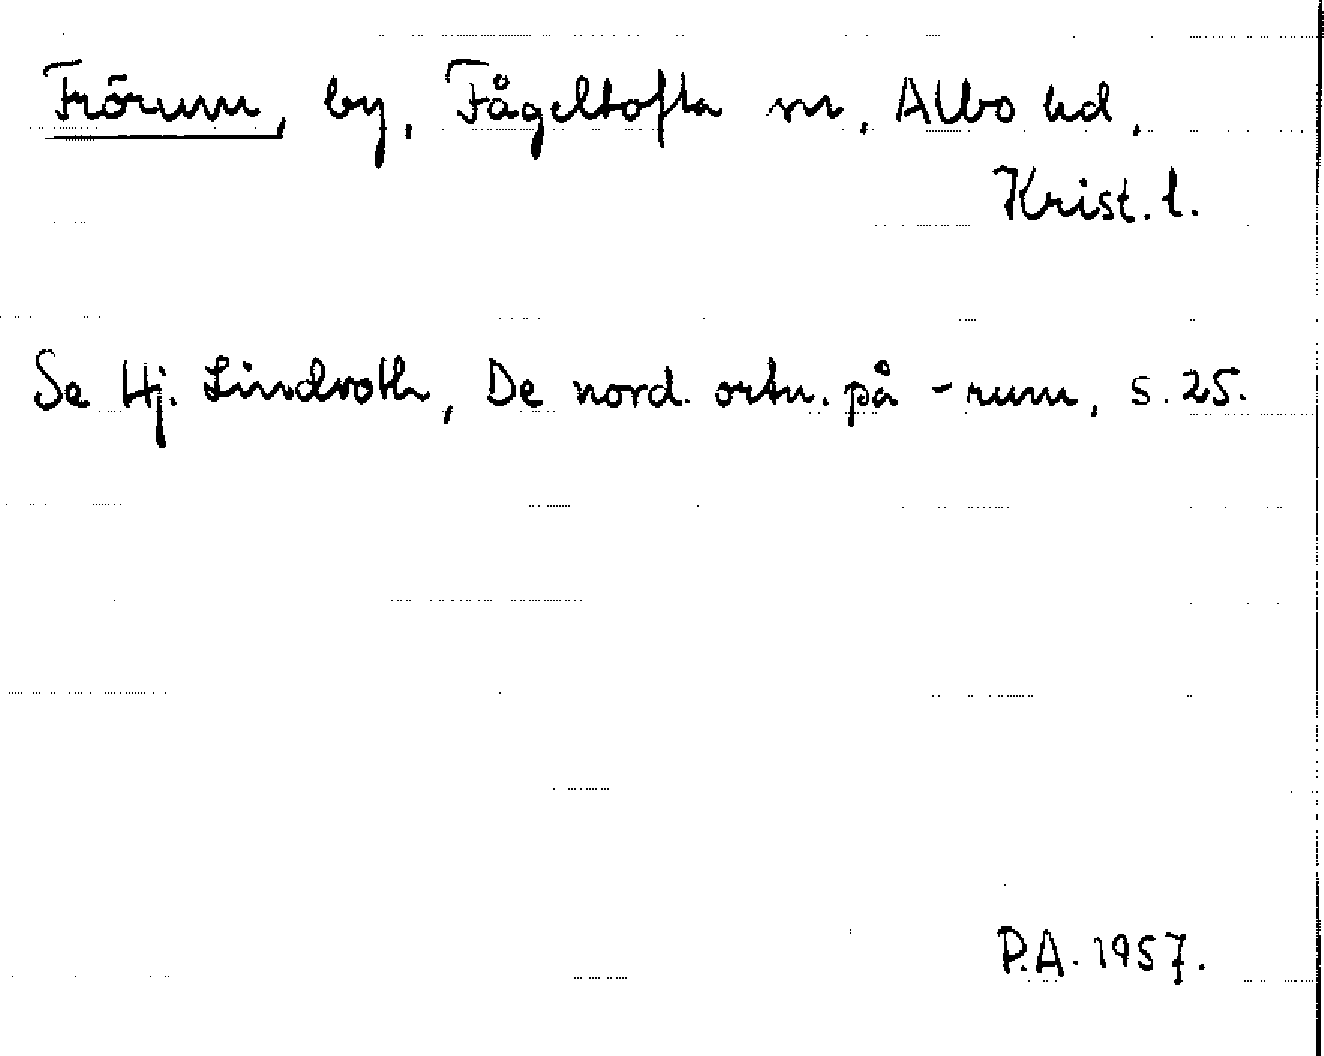 Frörum, by, Fågeltofta sn, Albo hd,
Krist. l.
Se Hj. Lindroth, De nord. ortn. på -rum, s. 25.
P.A. 1957.